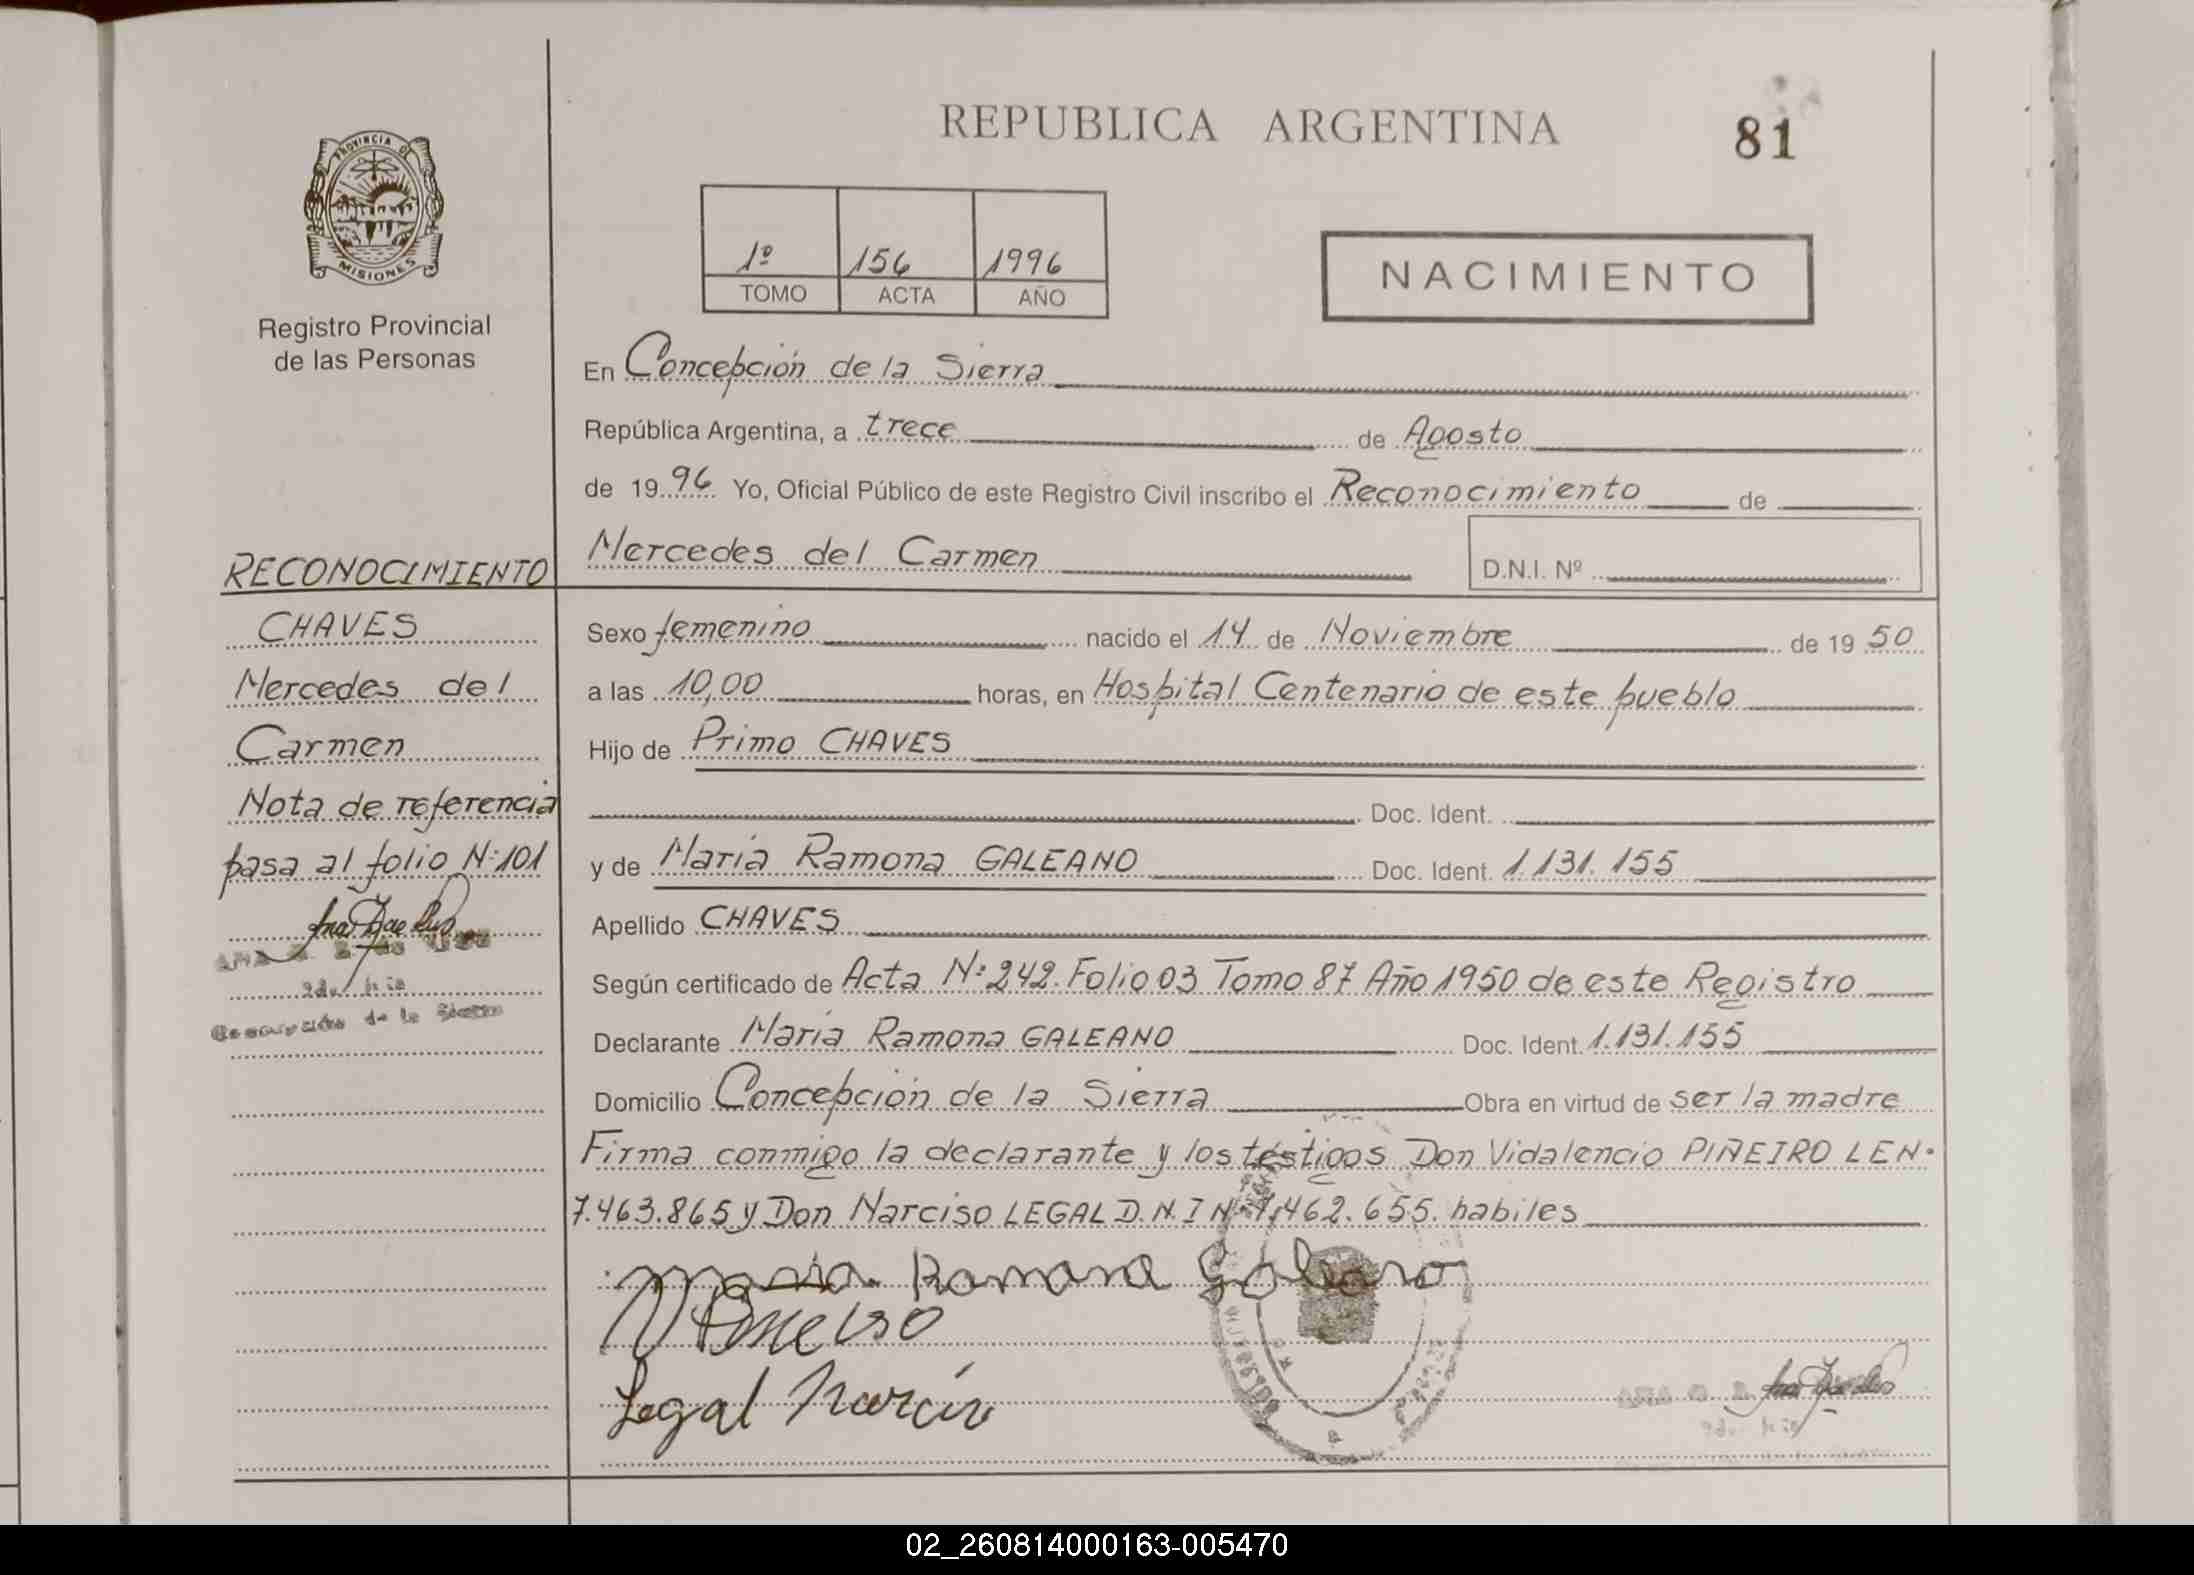 REPUBLICA ARGENTINA
81
PROVINCIA DE
MISIONES
Registro Provincial
de las Personas
1º 156 1996
TOMO ACTA AÑO
NACIMIENTO
En Concepción de la Sierra
República Argentina, a trece de Agosto
de 1996 Yo, Oficial Público de este Registro Civil inscribo el Reconocimiento de
Mercedes del Carmen D.N.I. Nº
RECONOCIMIENTO
CHAVES
Mercedes del
Carmen
Nota de referencia
pasa al folio Nº 101
Concepción de la Sierra
Sexo femenino nacido el 14 de Noviembre de 1950
a las 10,00 horas, en Hospital Centenario de este pueblo
Hijo de Primo CHAVES
Doc. Ident.
y de María Ramona GALEANO Doc. Ident. 1.131.155
Apellido CHAVES
Según certificado de Acta Nº 242. Folio 03 Tomo 87 Año 1950 de este Registro
Declarante María Ramona GALEANO Doc. Ident. 1.131.155
Domicilio Concepción de la Sierra Obra en virtud de ser la madre
Firma conmigo la declarante y los testigos Don Vidalencio PIÑEIRO LEN.
7.463.865 y Don Narciso LEGAL D.N.I Nº 7.462.655. habiles
Maria Ramona Galeano
Legal Narciso
02_260814000163-005470